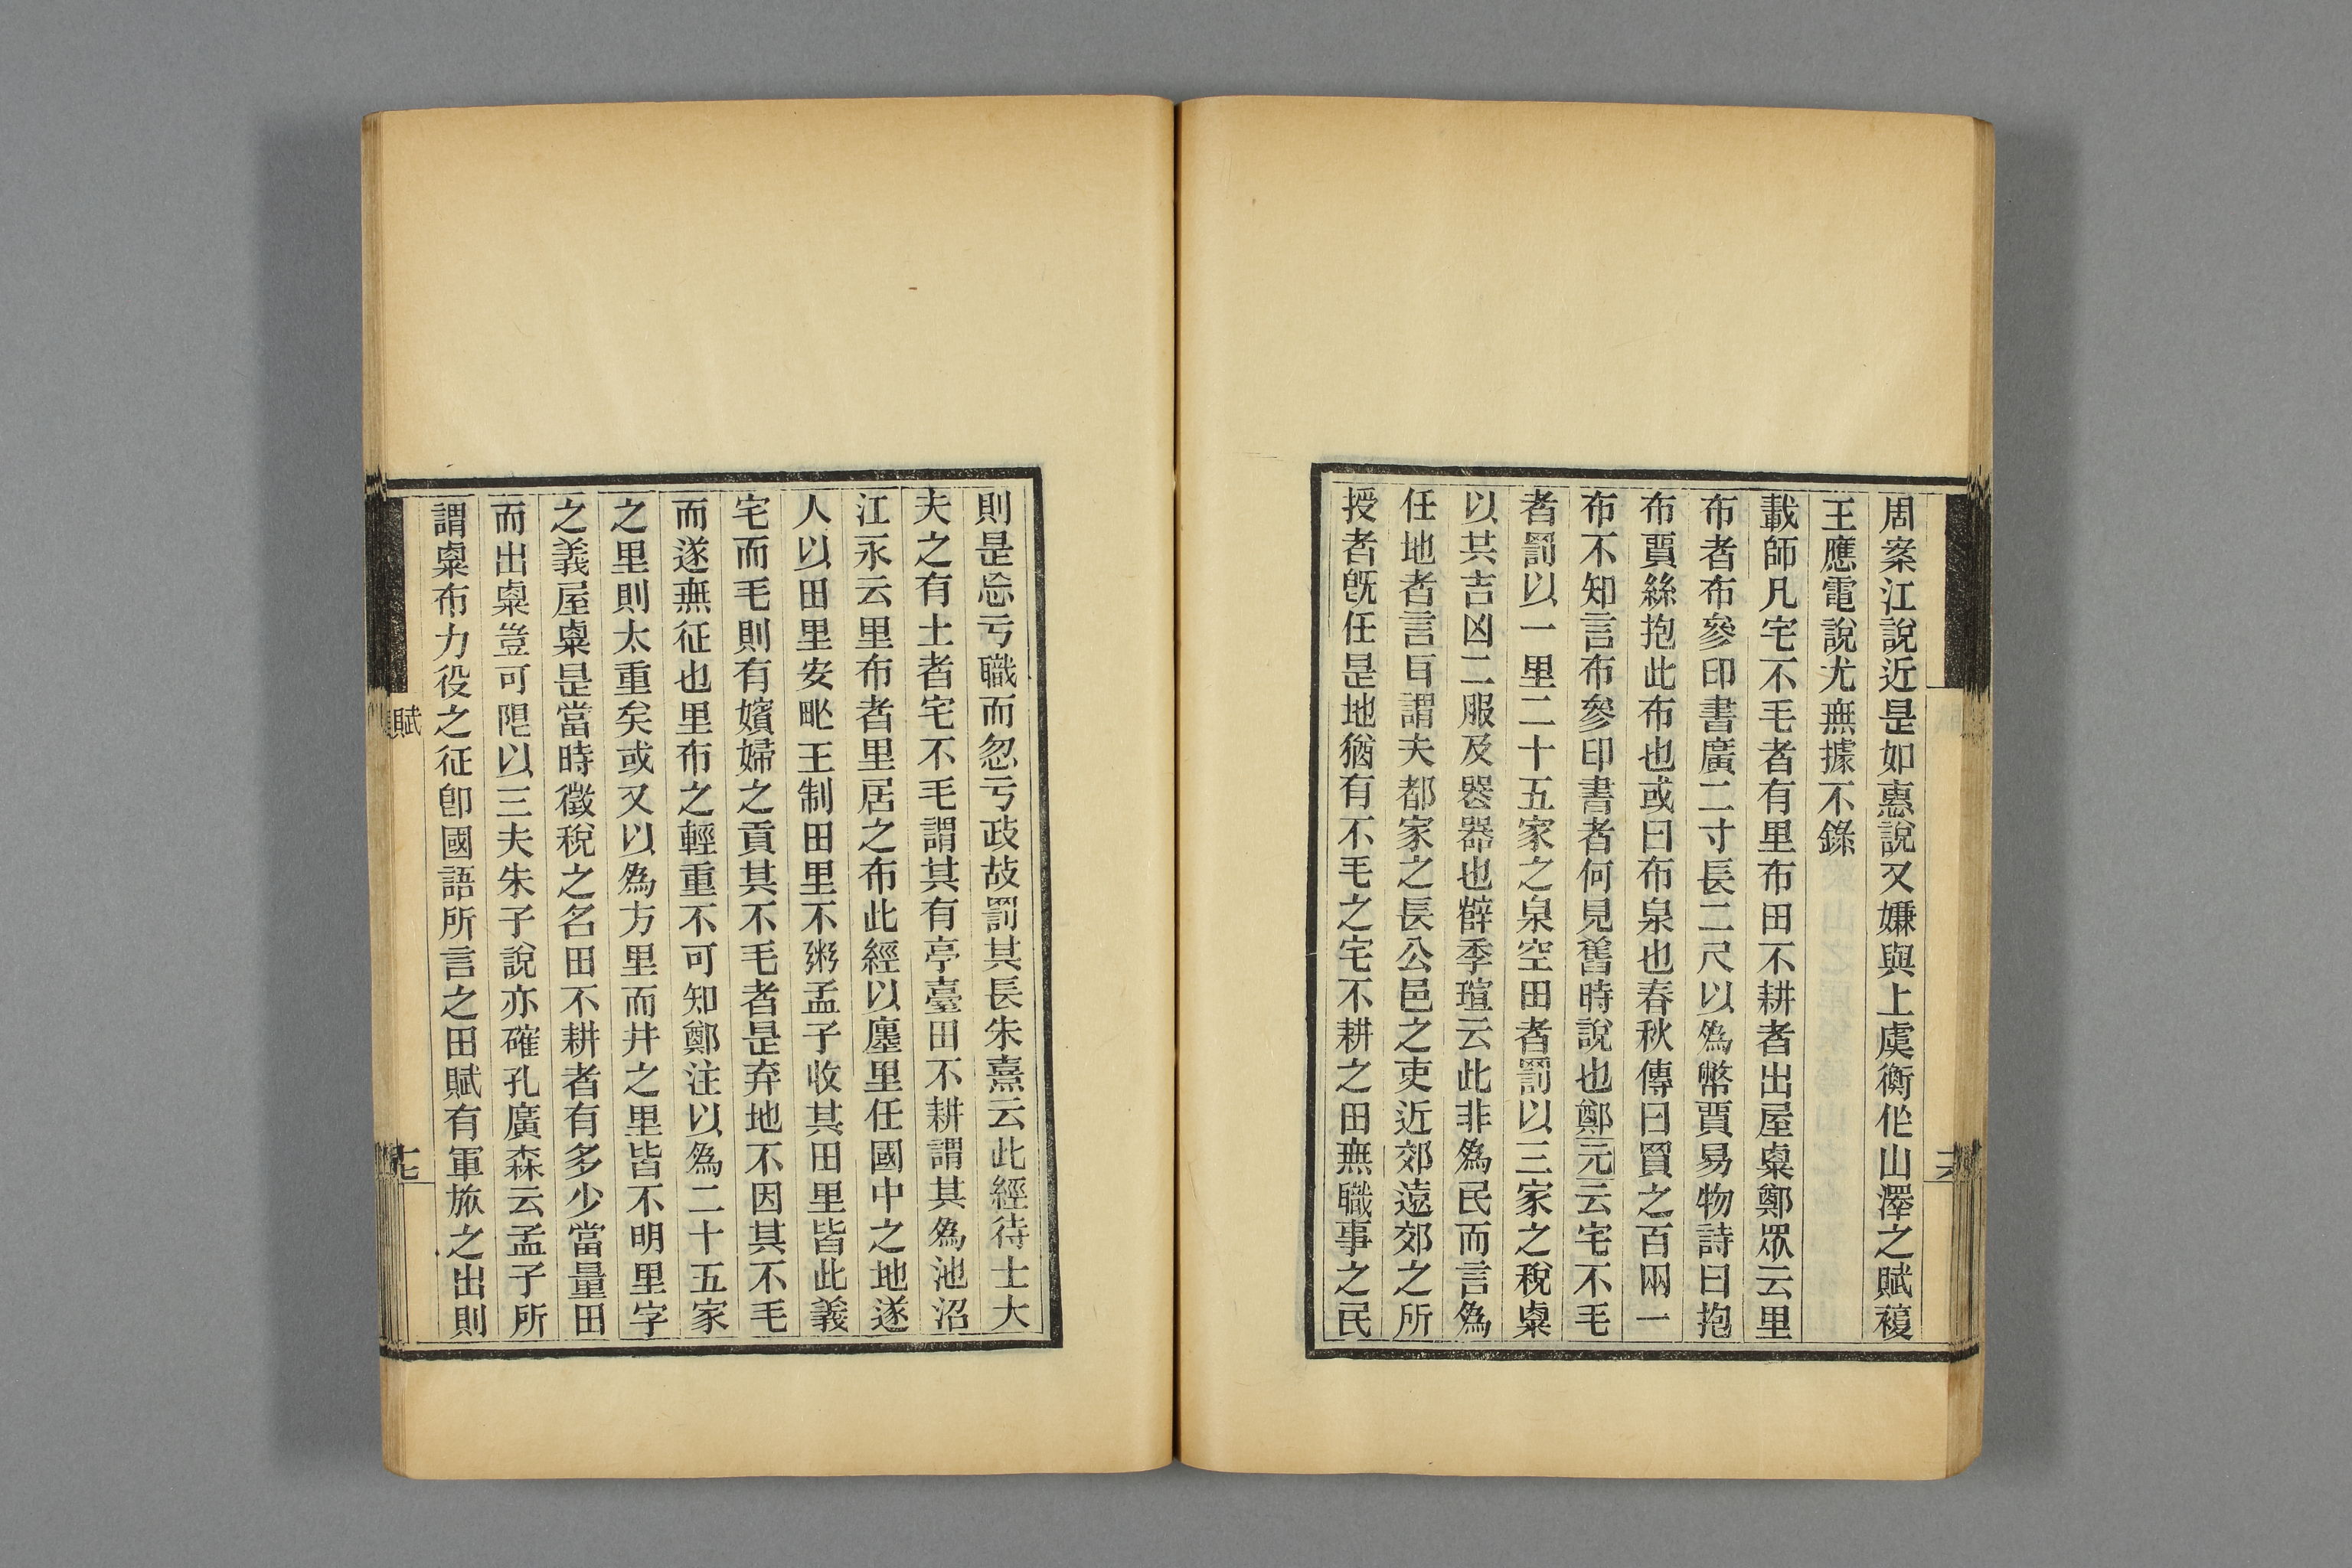 周案江說近是如惠說又嫌與上虞衡作山澤之賦複
王應電說尤無據不錄
載師凡宅不毛者有里布田不耕者出屋粟鄭眾云里
布者布參印書廣二寸長二尺以為幣賈易物詩曰抱
布賈絲抱此布也或曰布泉也春秋傳曰買之百兩一
布不知言布參印書者何見舊時說也鄭元云宅不毛
者罰以一里二十五家之泉空田者罰以三家之稅粟
以其吉凶二服及喪器也薛季瑄云此非為民而言為
任地者言耳謂夫都家之長公邑之吏近郊遠郊之所
授者旣任是地猶有不毛之宅不耕之田無職事之民
則是怠亏職而忽亏政故罰其長朱熹云此經待士大
夫之有土者宅不毛謂其有亭臺田不耕謂其為池沼
江永云里布者里居之布此經以廛里任國中之地遂
人以田里安甿王制田里不粥孟子收其田里皆此義
宅而毛則有嬪婦之貢其不毛者是弃地不因其不毛
而遂無征也里布之輕重不可知鄭注以為二十五家
之里則太重矣或又以為方里而井之里皆不明里字
之義屋粟是當時徵稅之名田不耕者有多少當量田
而出粟豈可限以三夫朱子說亦確孔廣森云孟子所
謂粟布力役之征卽國語所言之田賦有軍旅之出則
賦
十七